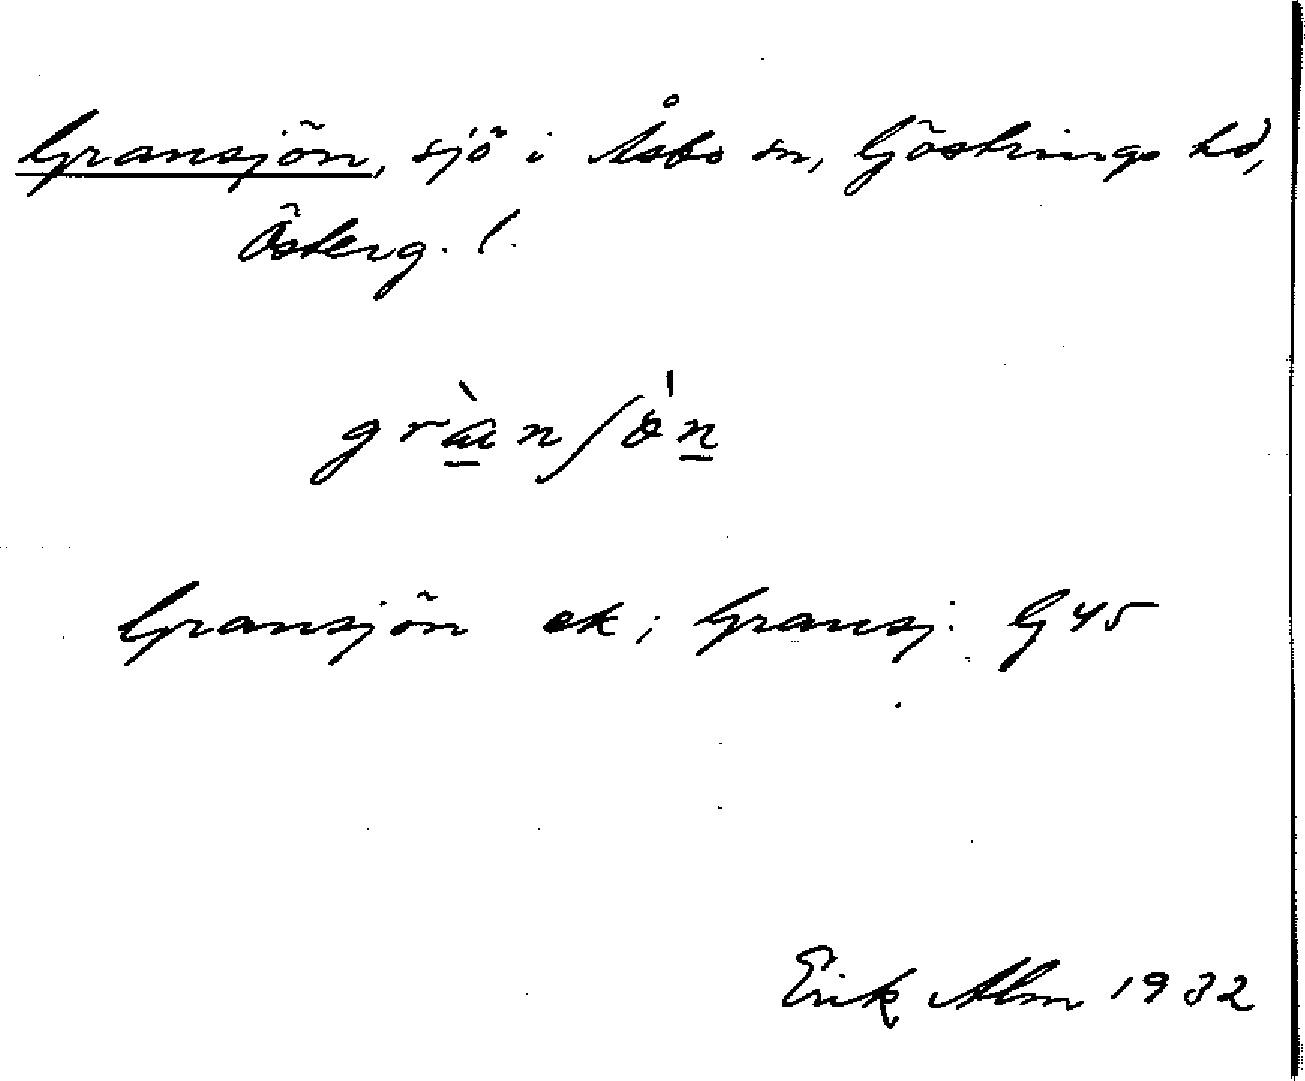 Gransjön, sjö i Åsbo sn, Göstrings hd,
Österg. l.
grànʃȯ̀n
Gransjön ek; Gransj. G45
Erik Alm 1932